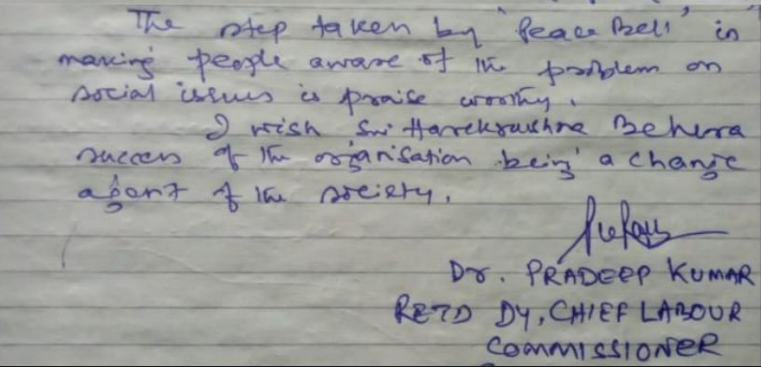 The step taken by 'Peace Bell' in
making people aware of the problem on
social issues is praise worthy.
I wish Sri Harekrushna Behera
success of the organisation being a change
agent of the society.
Dr. PRADEEP KUMAR
RETD DY, CHIEF LABOUR
COMMISSIONER